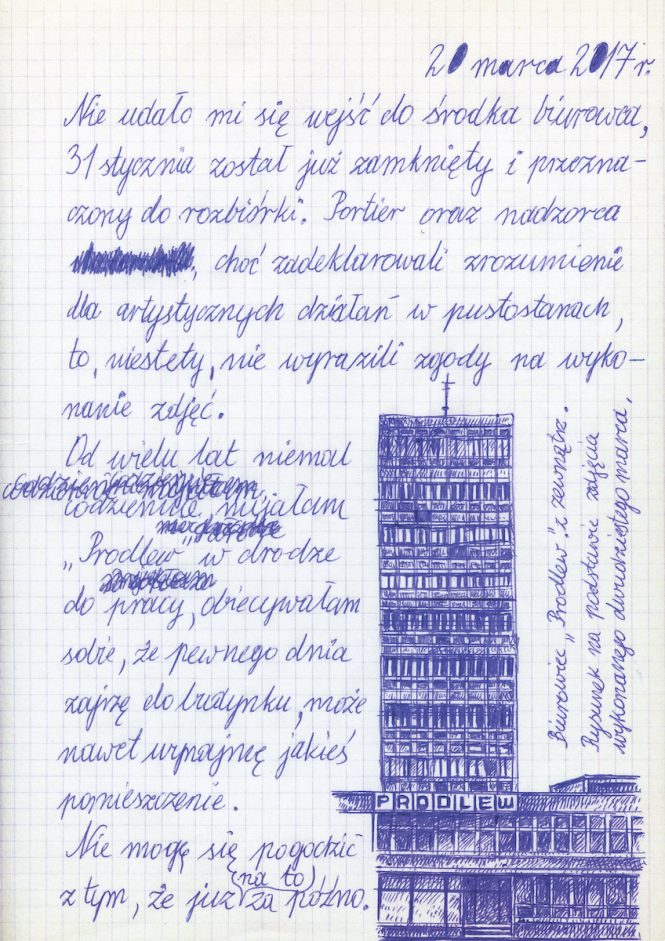 20 marca 2017 r.
Nie udało mi się wejść do środka biurowca,
31 stycznia został już zamknięty i przezna-
czony do rozbiórki. Portier oraz nadzorca
, choć zadeklarowali zrozumienie
dla artystycznych działań w pustostanach,
to, niestety, nie wyrazili zgody na wyko-
nanie zdjęć.
Od wielu lat niemal
codziennie mijałam
„Prodlew” w drodze
do pracy, obiecywałam
sobie, że pewnego dnia
zajrzę do budynku, może
nawet wynajmę jakieś
pomieszczenie.
Nie mogę się pogodzić
z tym, że już (na to) za późno.
PRODLEW
Biurowiec „Prodlew” z zewnątrz.
Rysunek na podstawie zdjęcia
wykonanego dwudziestego marca.